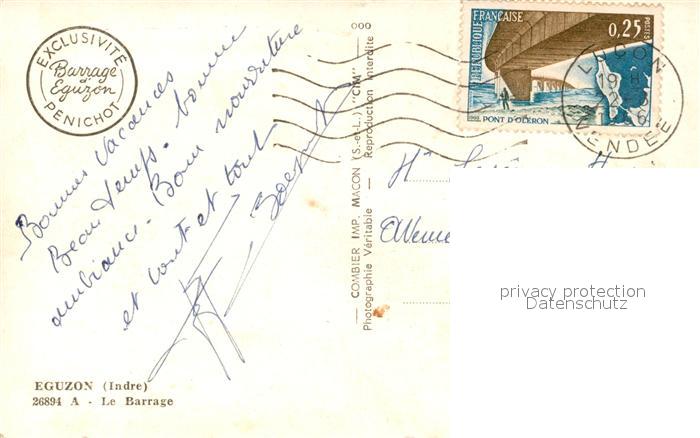 EXCLUSIVITÉ
Barrage
d'
Eguzon
PENICHOT
Bonnes Vacances
Beau temps. bonne
ambiance. Bonne nourriture
et tout et tout
EGUZON (Indre)
26894 A - Le Barrage
COMBIER IMP. MACON (S.-et-L.) "CIM"
Photographie Véritable - Reproduction Interdite
RÉPUBLIQUE FRANÇAISE
0,25
POSTES
PONT D'OLÉRON
LUÇON
19 H
VENDEE
privacy protection
Datenschutz